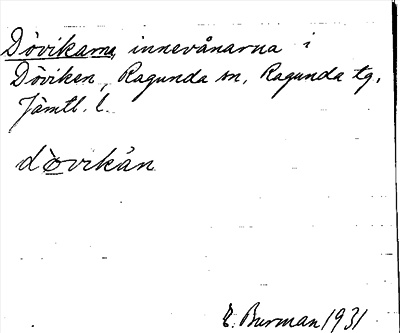 Dövikarna, innevånarna i
Döviken, Ragunda sn, Ragunda tg,
Jämtl. l.
dòvikàn
E. Burman 1931